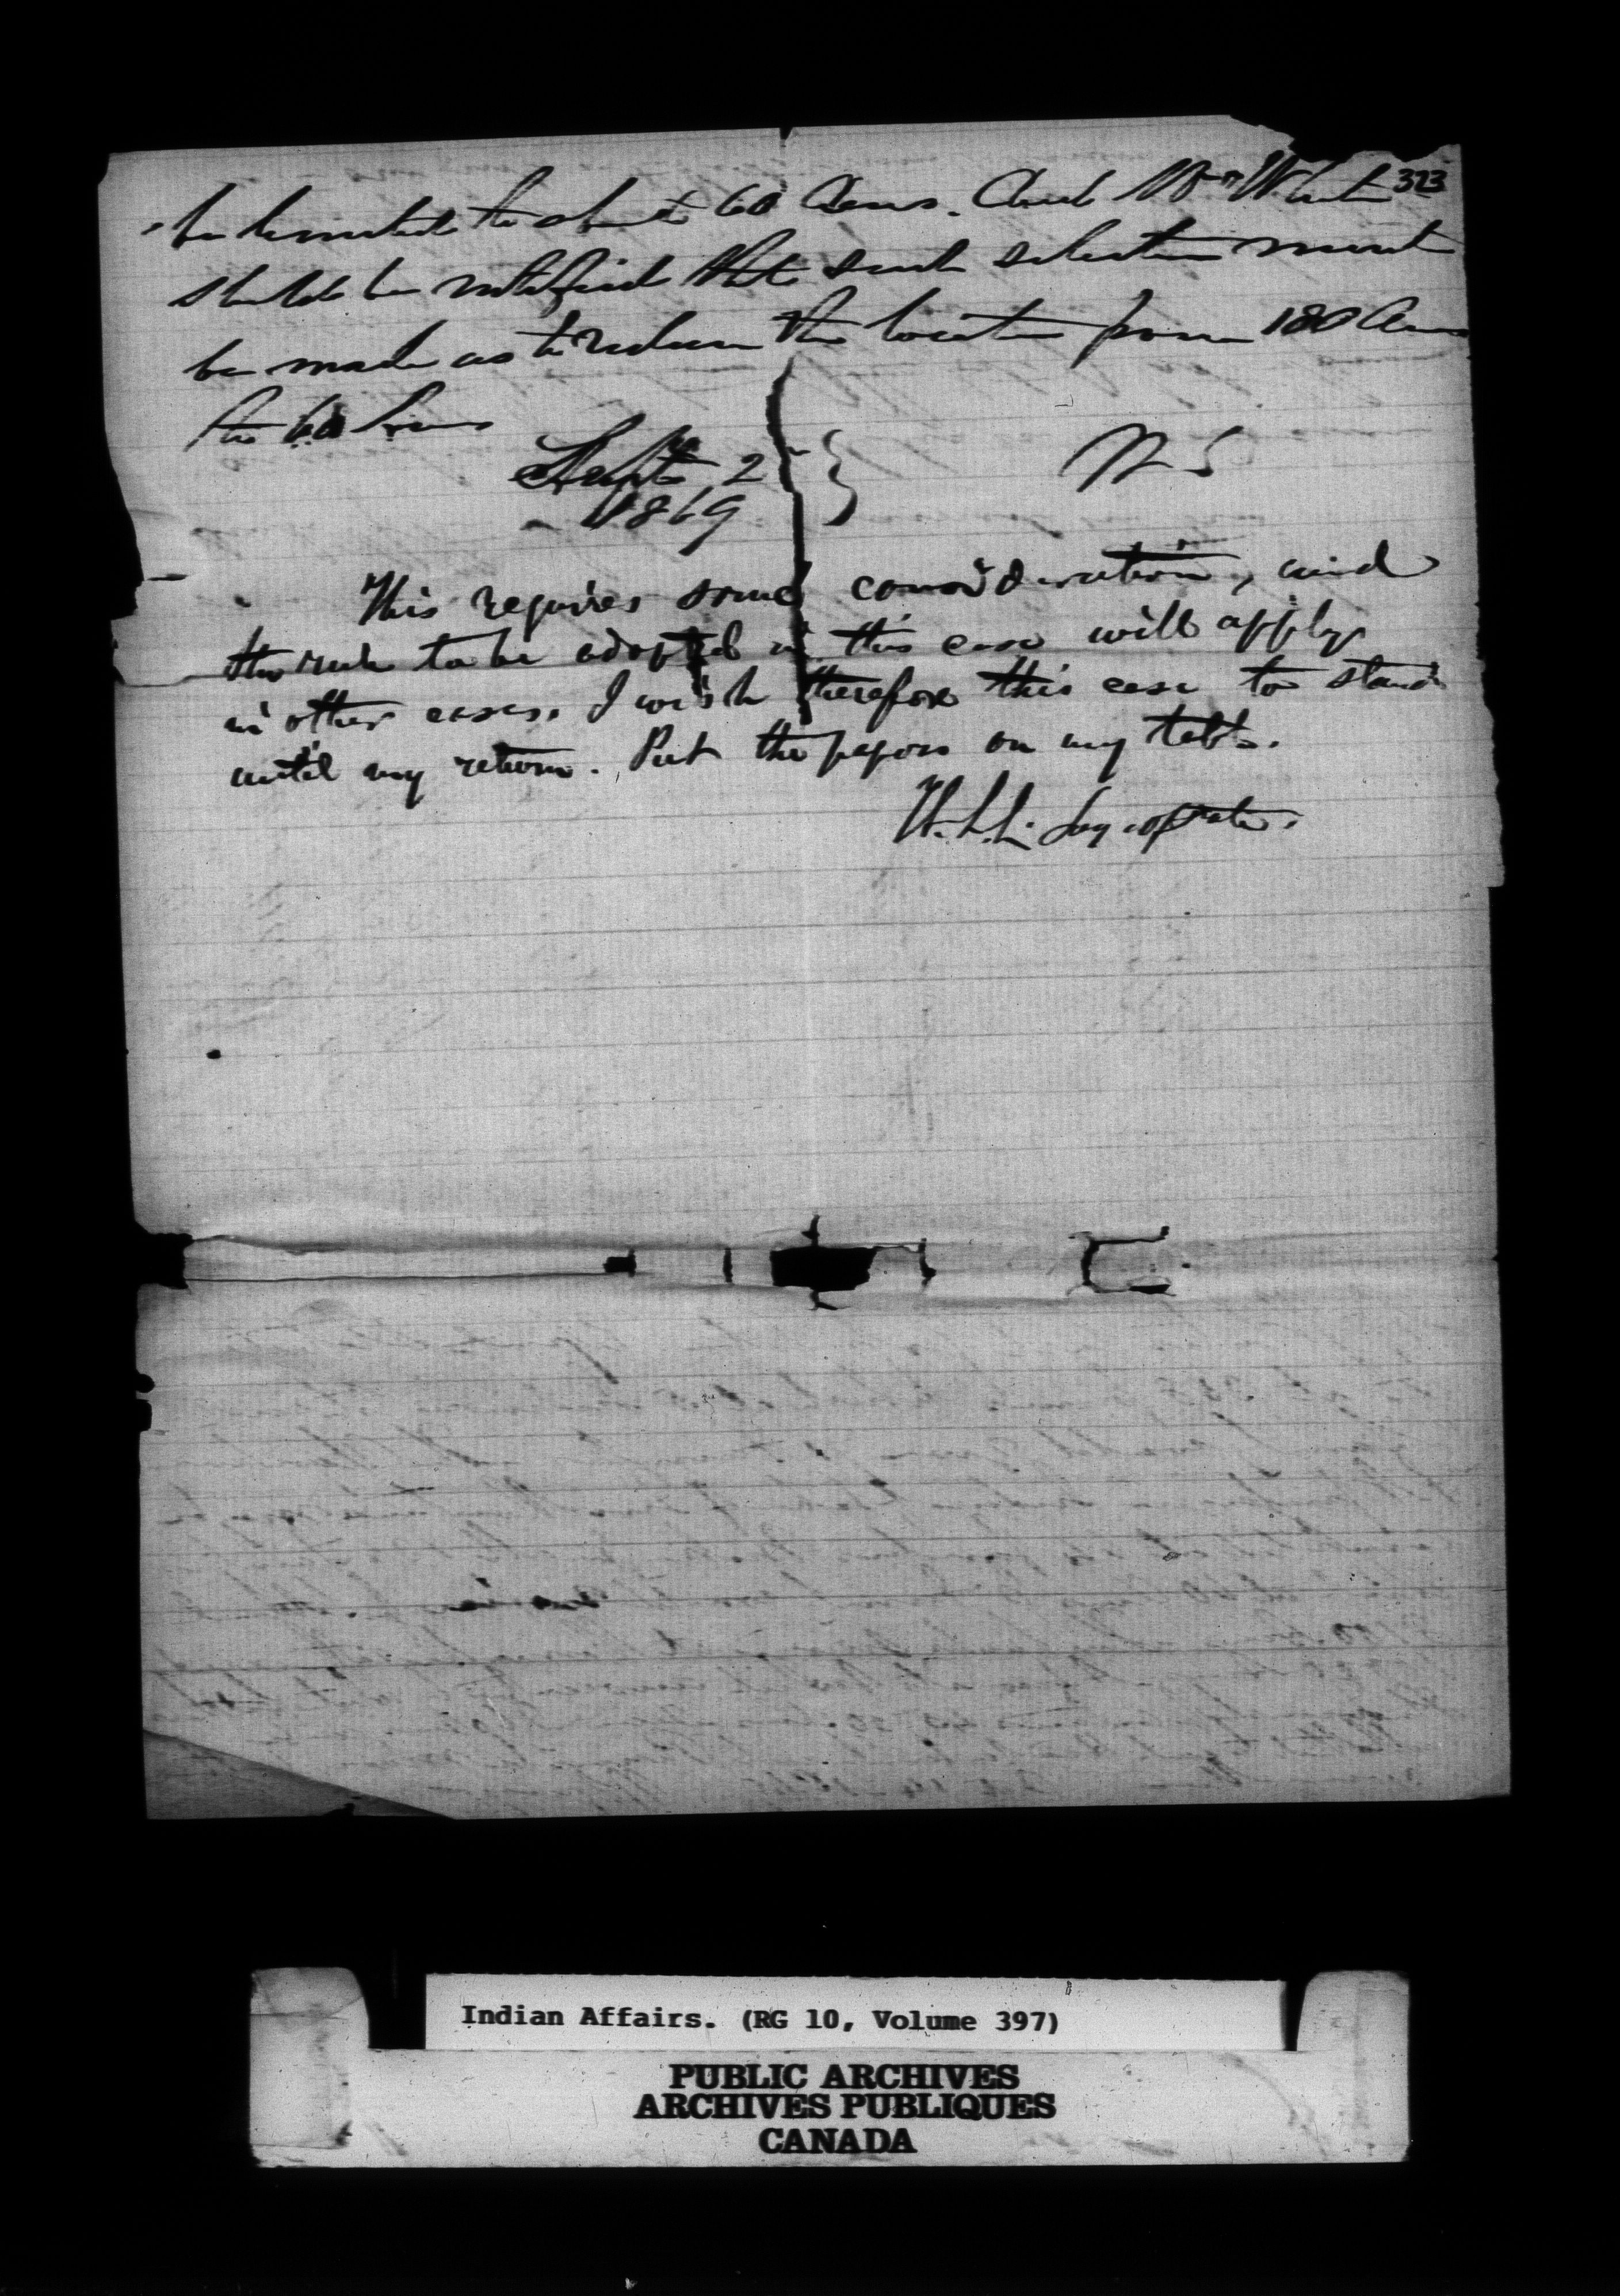 323
be limited to about 60 Acres. And Wm White
should be notified that such selection must
be made as to reduce the location from 180 Acres
to 60 Acres
Sept 2
1869 } WS
This requires some consideration, and
the rule to be adopted in this case will apply
in other cases. I wish therefore this case to stand
until my return. Put the papers on my table.
H.L.L.
Indian Affairs. (RG 10, Volume 397)
PUBLIC ARCHIVES
ARCHIVES PUBLIQUES
CANADA